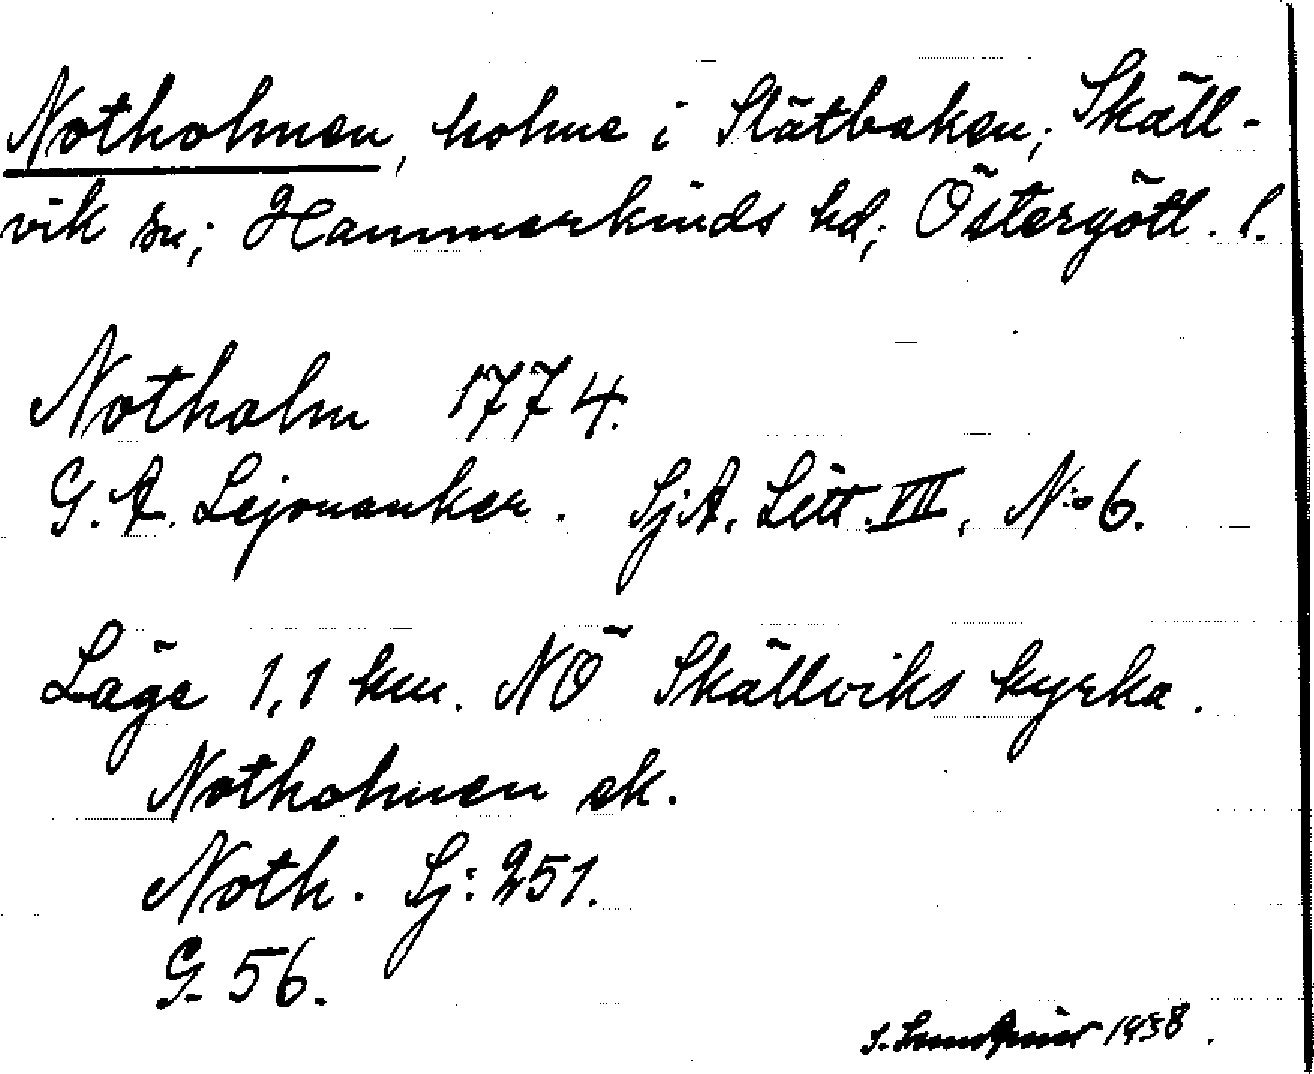 Notholmen, holme i Slätbaken; Skäll-
vik sn; Hammerkinds hd; Östergötl. l.
Notholm 1774.
G. A. Lejonanker. SjA. Litt. VIII, N:o 6.
Läge 1,1 km. NÖ Skällviks kyrka.
Notholmen ek.
Noth. Sj: 251.
G. 56.
1938.